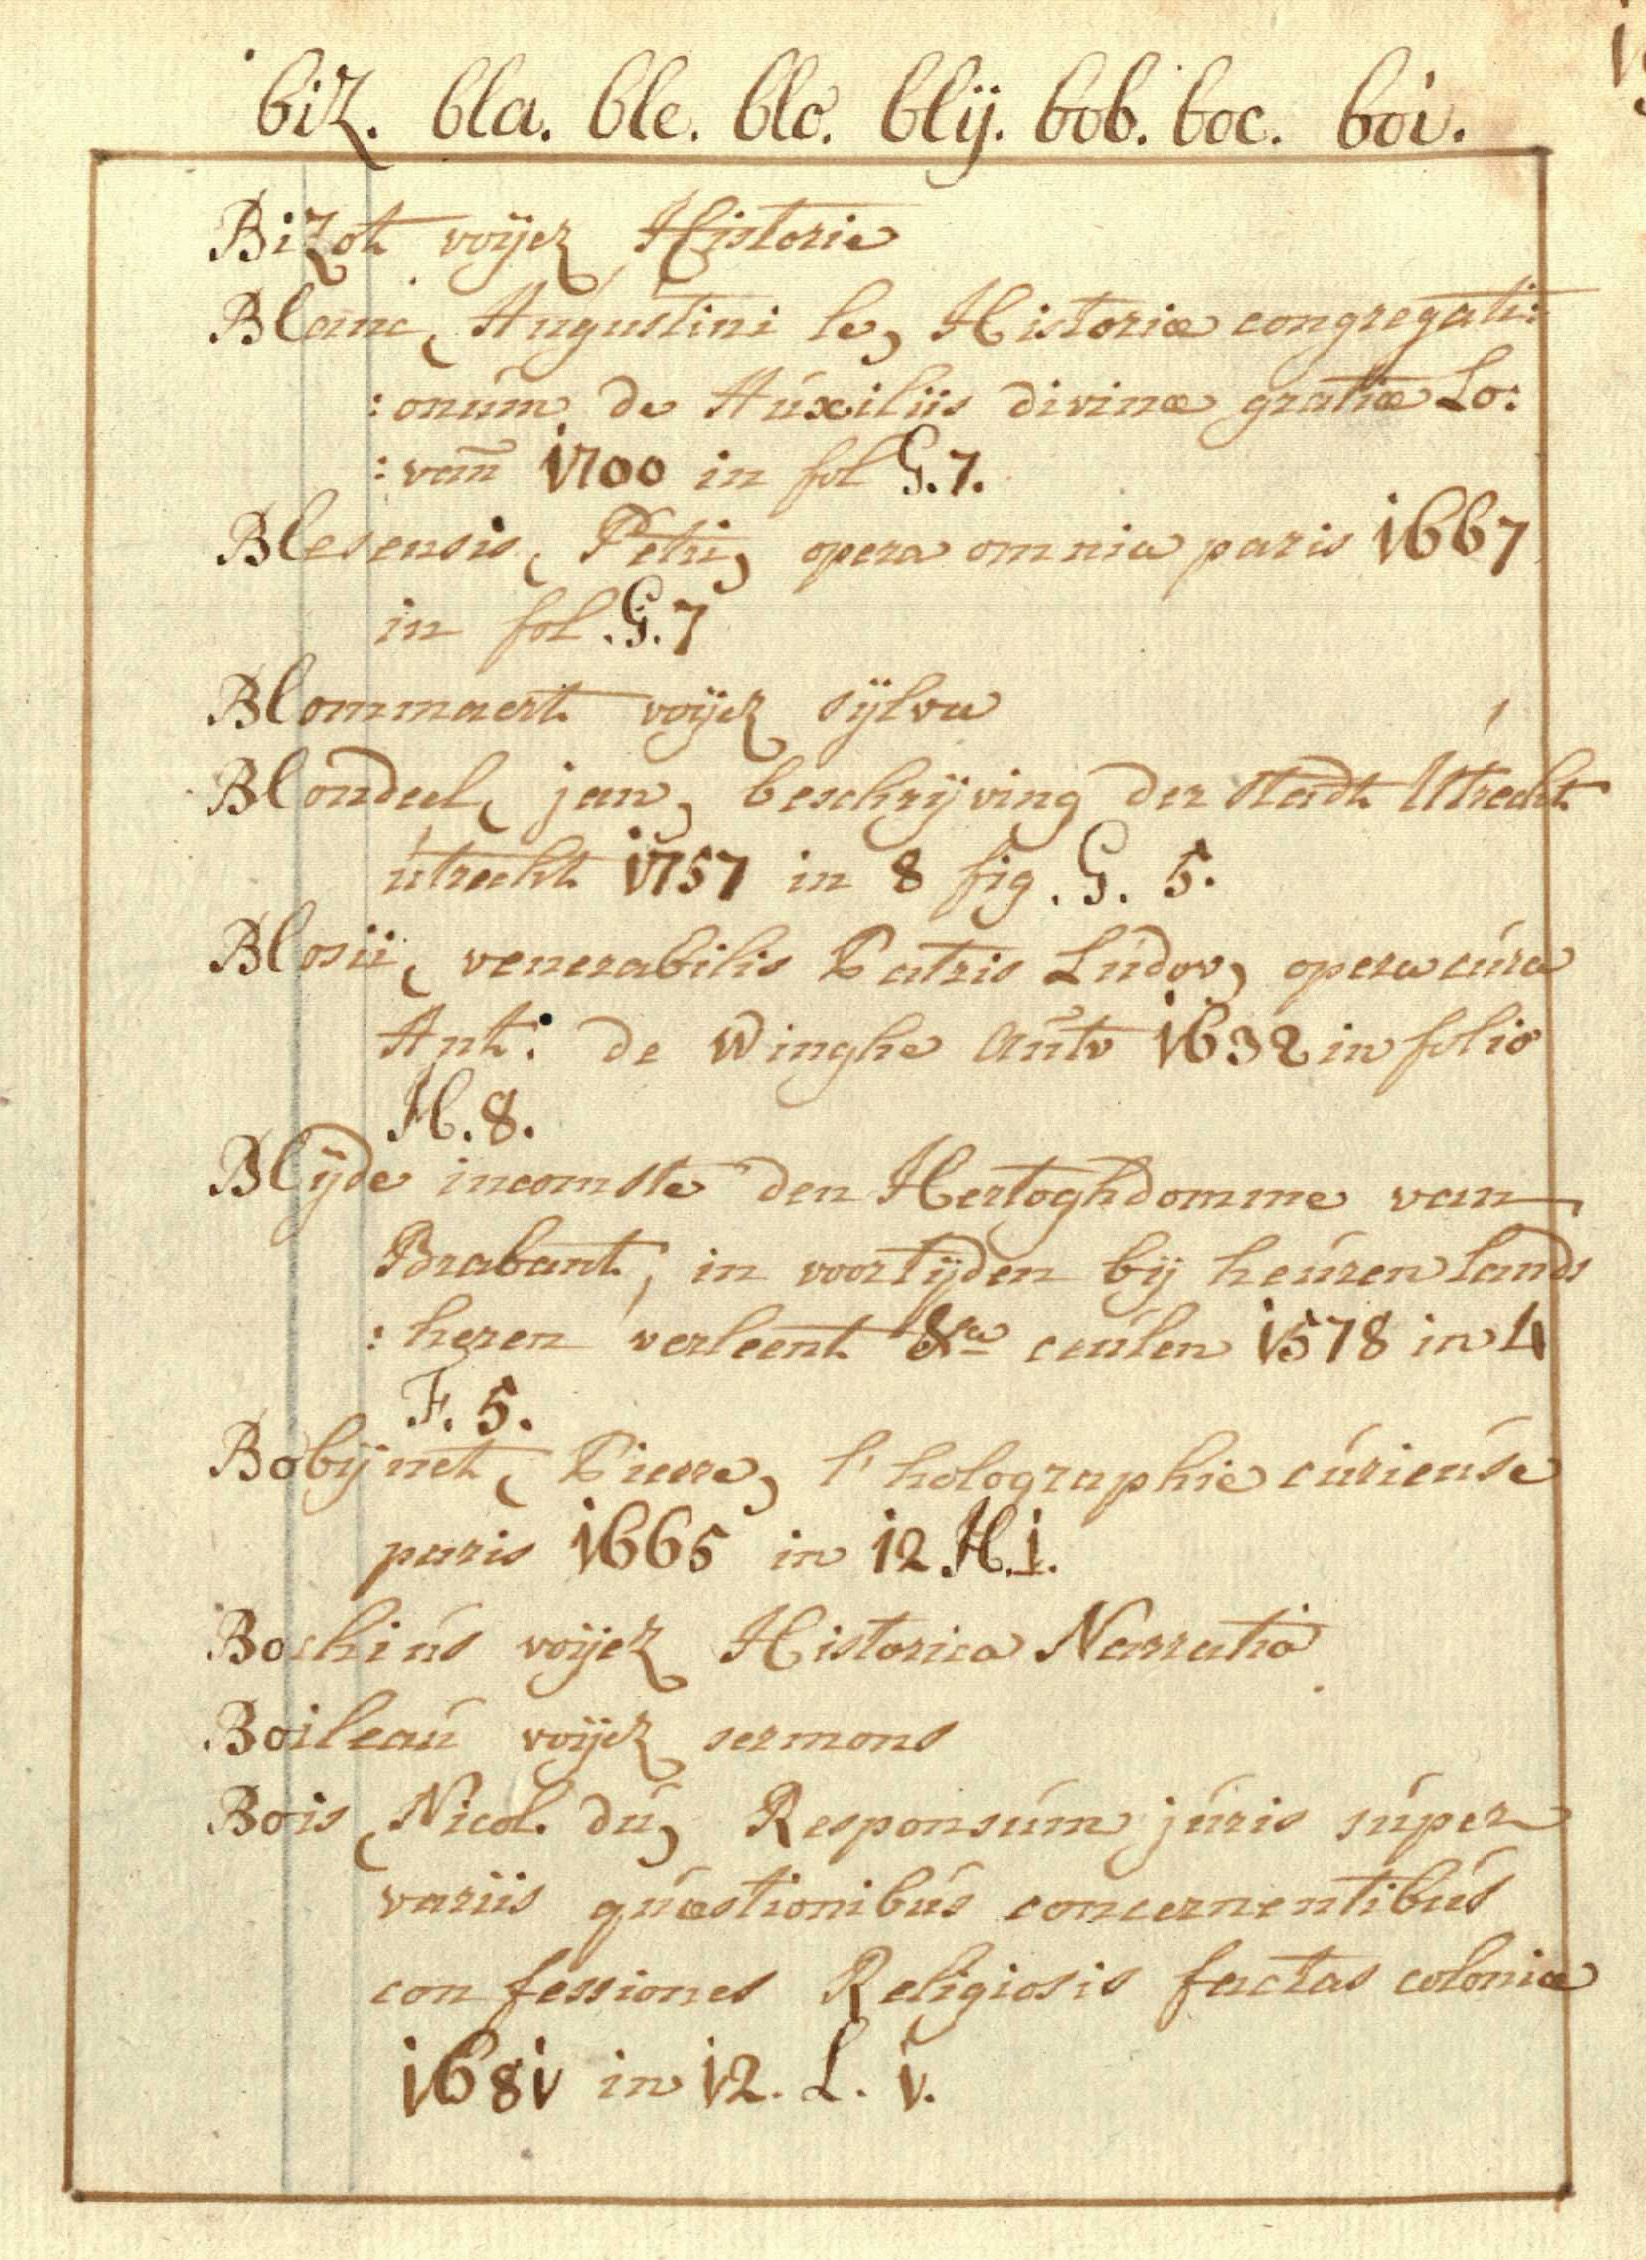 biz. bla. ble. blo. blÿ. bob. boc. boi.
Bizot voÿez Historie
Blanc, Augustini le, Historiæ congregati:
:onum de Auxiliis divinæ gratiæ Lo:
:van 1700 in fol G.7.
Blesensis, Petri, opera omnia paris 1667
in fol .G.7
Blommaert voÿez sÿlva
Blondeel, jan, beschrÿving der stadt Utrecht
utrecht 1757 in 8 fig . G. 5.
Blosii, venerabilis Patris Ludov, opera cura
Ant: de Winghe Antv 1632 in folio
H. 8.
Blÿde incomste den Hertoghdomme van
Brabant, in voortÿden bÿ heuren lands
:heren verleent &a ceulen 1578 in 4
F. 5.
Bobÿnet, Pierre, l'holographie curieuse
paris 1665 in 12 .H.1.
Bochius voÿez Historica Narratio
Boileau voÿez sermons
Bois, Nicol. du, Responsum juris super
variis quæstionibus concernentibus
confessiones Religiosis factas coloniæ
1681 in 12. L. 1.